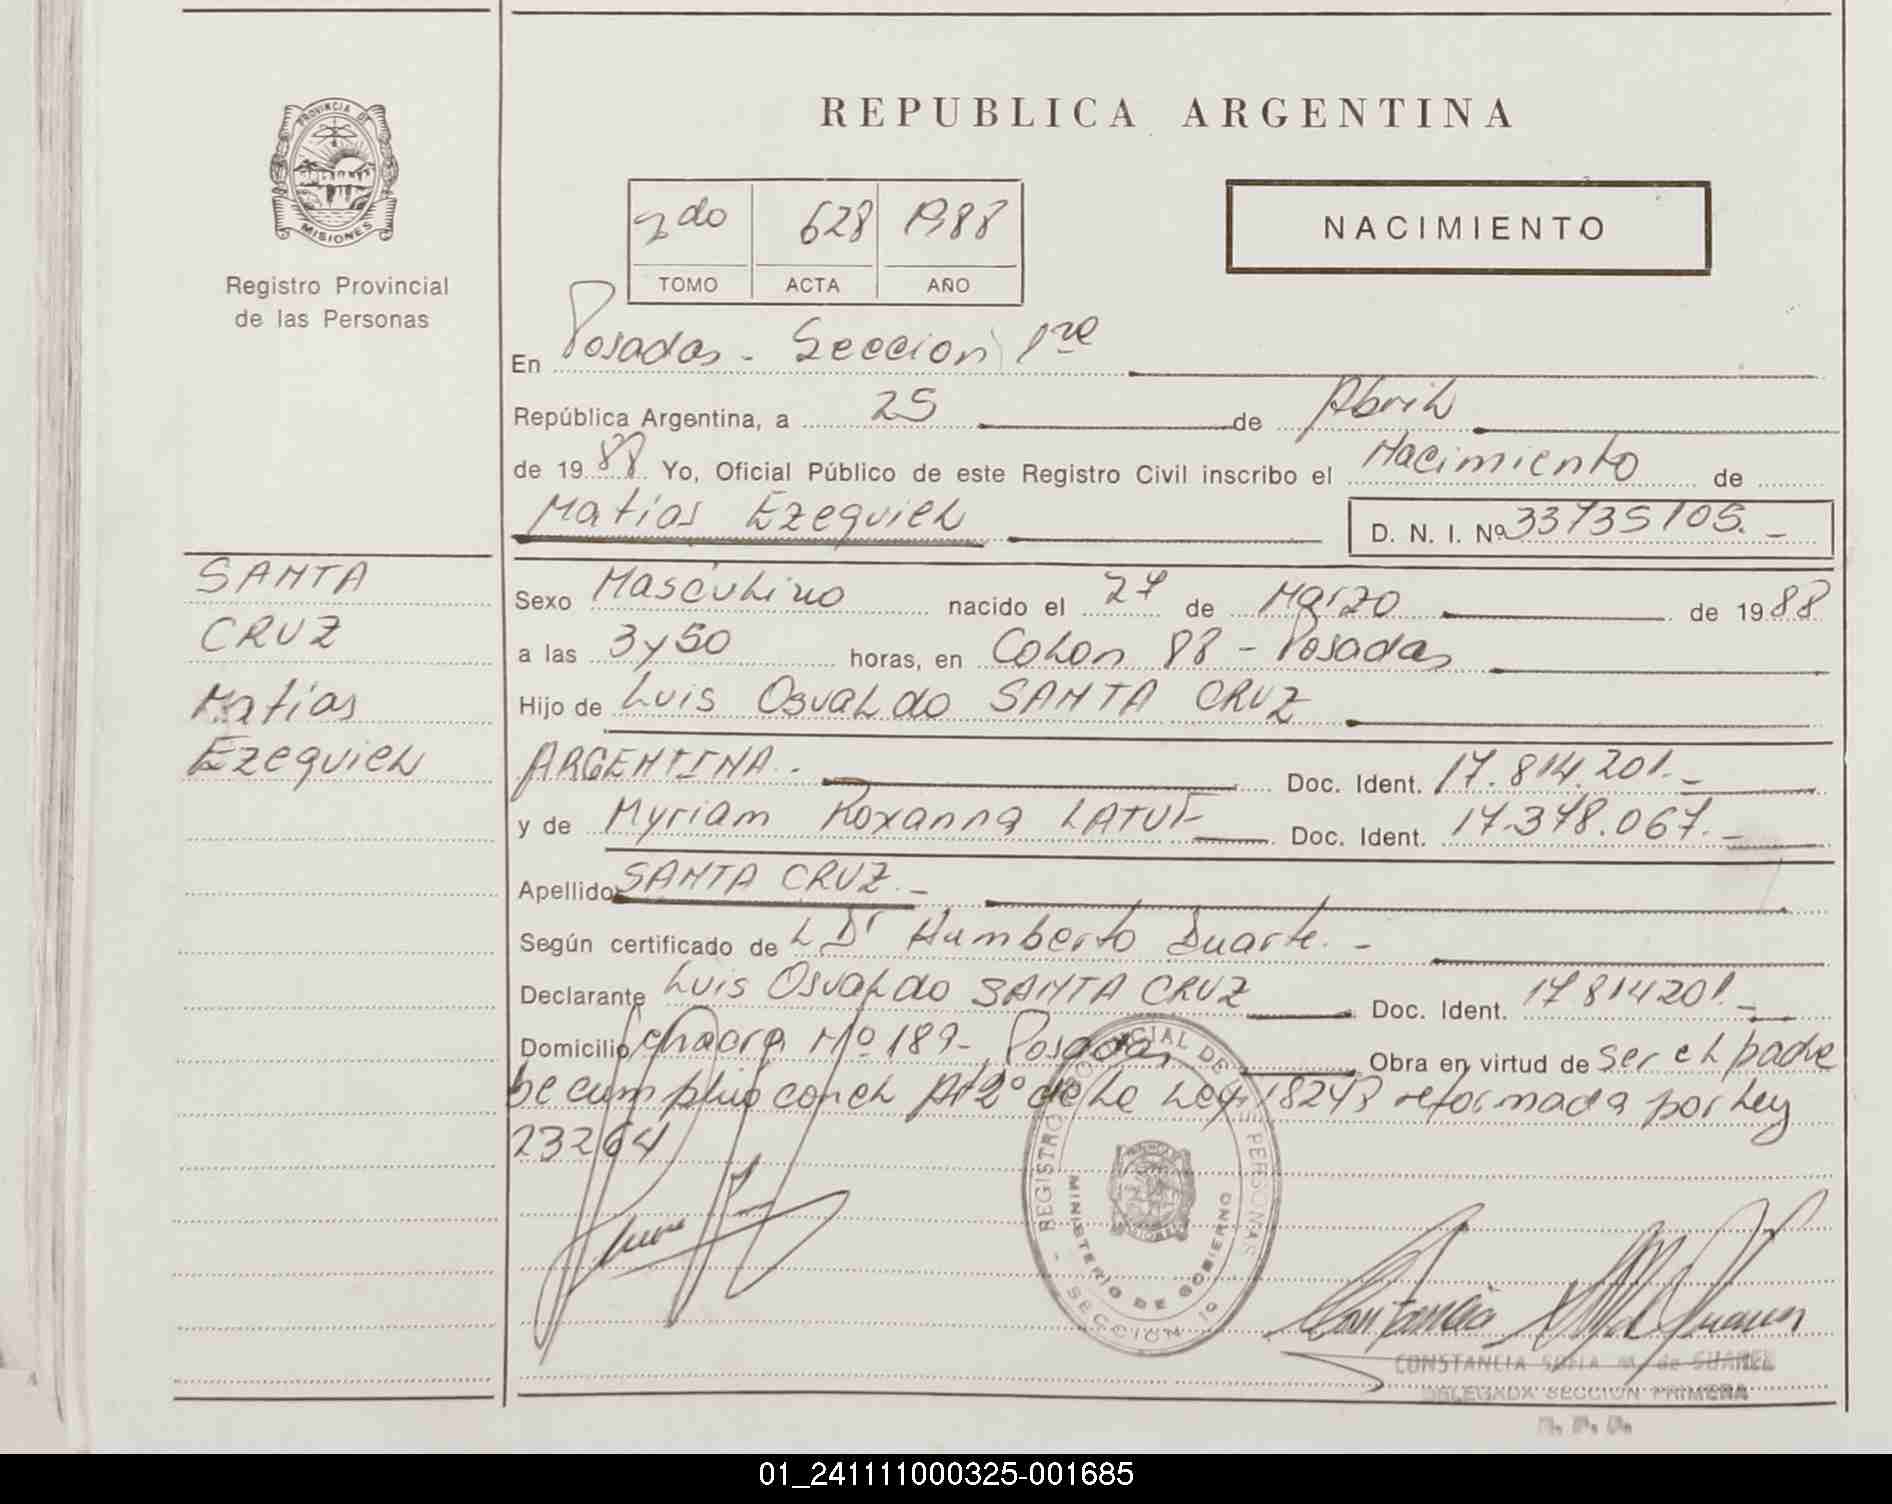 REPUBLICA ARGENTINA
PROVINCIA DE
MISIONES
Registro Provincial
de las Personas
2do 628 1988
TOMO ACTA AÑO
NACIMIENTO
En Posadas - Seccion 1ra
República Argentina, a 25 de Abril
de 1988 Yo, Oficial Público de este Registro Civil inscribo el Nacimiento de
Matías Ezequiel D. N. I. Nº 33735105.-
SANTA
CRUZ
Matías
Ezequiel
Sexo Masculino nacido el 27 de Marzo de 1988
a las 3 y 50 horas, en Colon 88 - Posadas
Hijo de Luis Osvaldo SANTA CRUZ
ARGENTINA.- Doc. Ident. 17.814.201.-
y de Myriam Roxanna Doc. Ident. 17.378.067.-
Apellido SANTA CRUZ.-
Según certificado de L Dr Humberto Duarte.-
Declarante Luis Osvaldo SANTA CRUZ Doc. Ident. 17814201.-
Domicilio Chacra Nº 189- Posadas Obra en virtud de ser el padre
Se cumplió con el Art 2º de la Ley 18248 reformada por Ley
23264
REGISTRO PROVINCIAL DE PERSONAS
MINISTERIO DE GOBIERNO
SECCION 1º
CONSTANCIA SOFIA M. de SUAREZ
DELEGADA SECCION PRIMERA
01_241111000325-001685